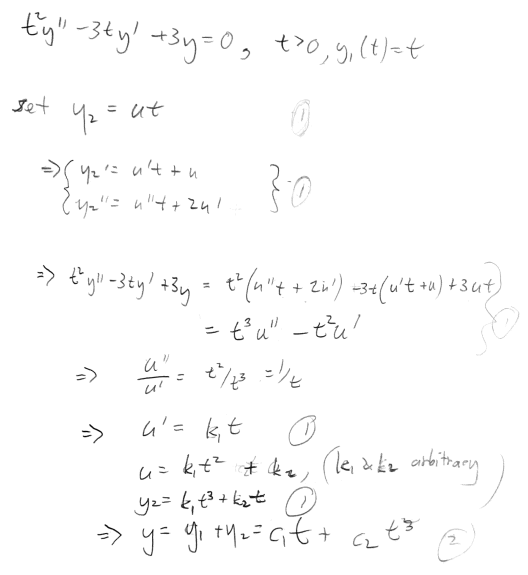 t²y'' - 3ty' + 3y = 0, t>0, y₁(t) = t
set y₂ = ut ①
=> { y₂' = u't + u
{ y₂'' = u''t + 2u' } ①
=> t²y'' - 3ty' + 3y = t²(u''t + 2u') - 3t(u't + u) + 3ut ①
= t³u'' - t²u'
=> u''/u' = t²/t³ = 1/t
=> u' = k₁t ①
u = k₁t² + k₂, (k₁ & k₂ arbitrary)
y₂ = k₁t³ + k₂t ①
=> y = y₁ + y₂ = c₁t + c₂t³ ②